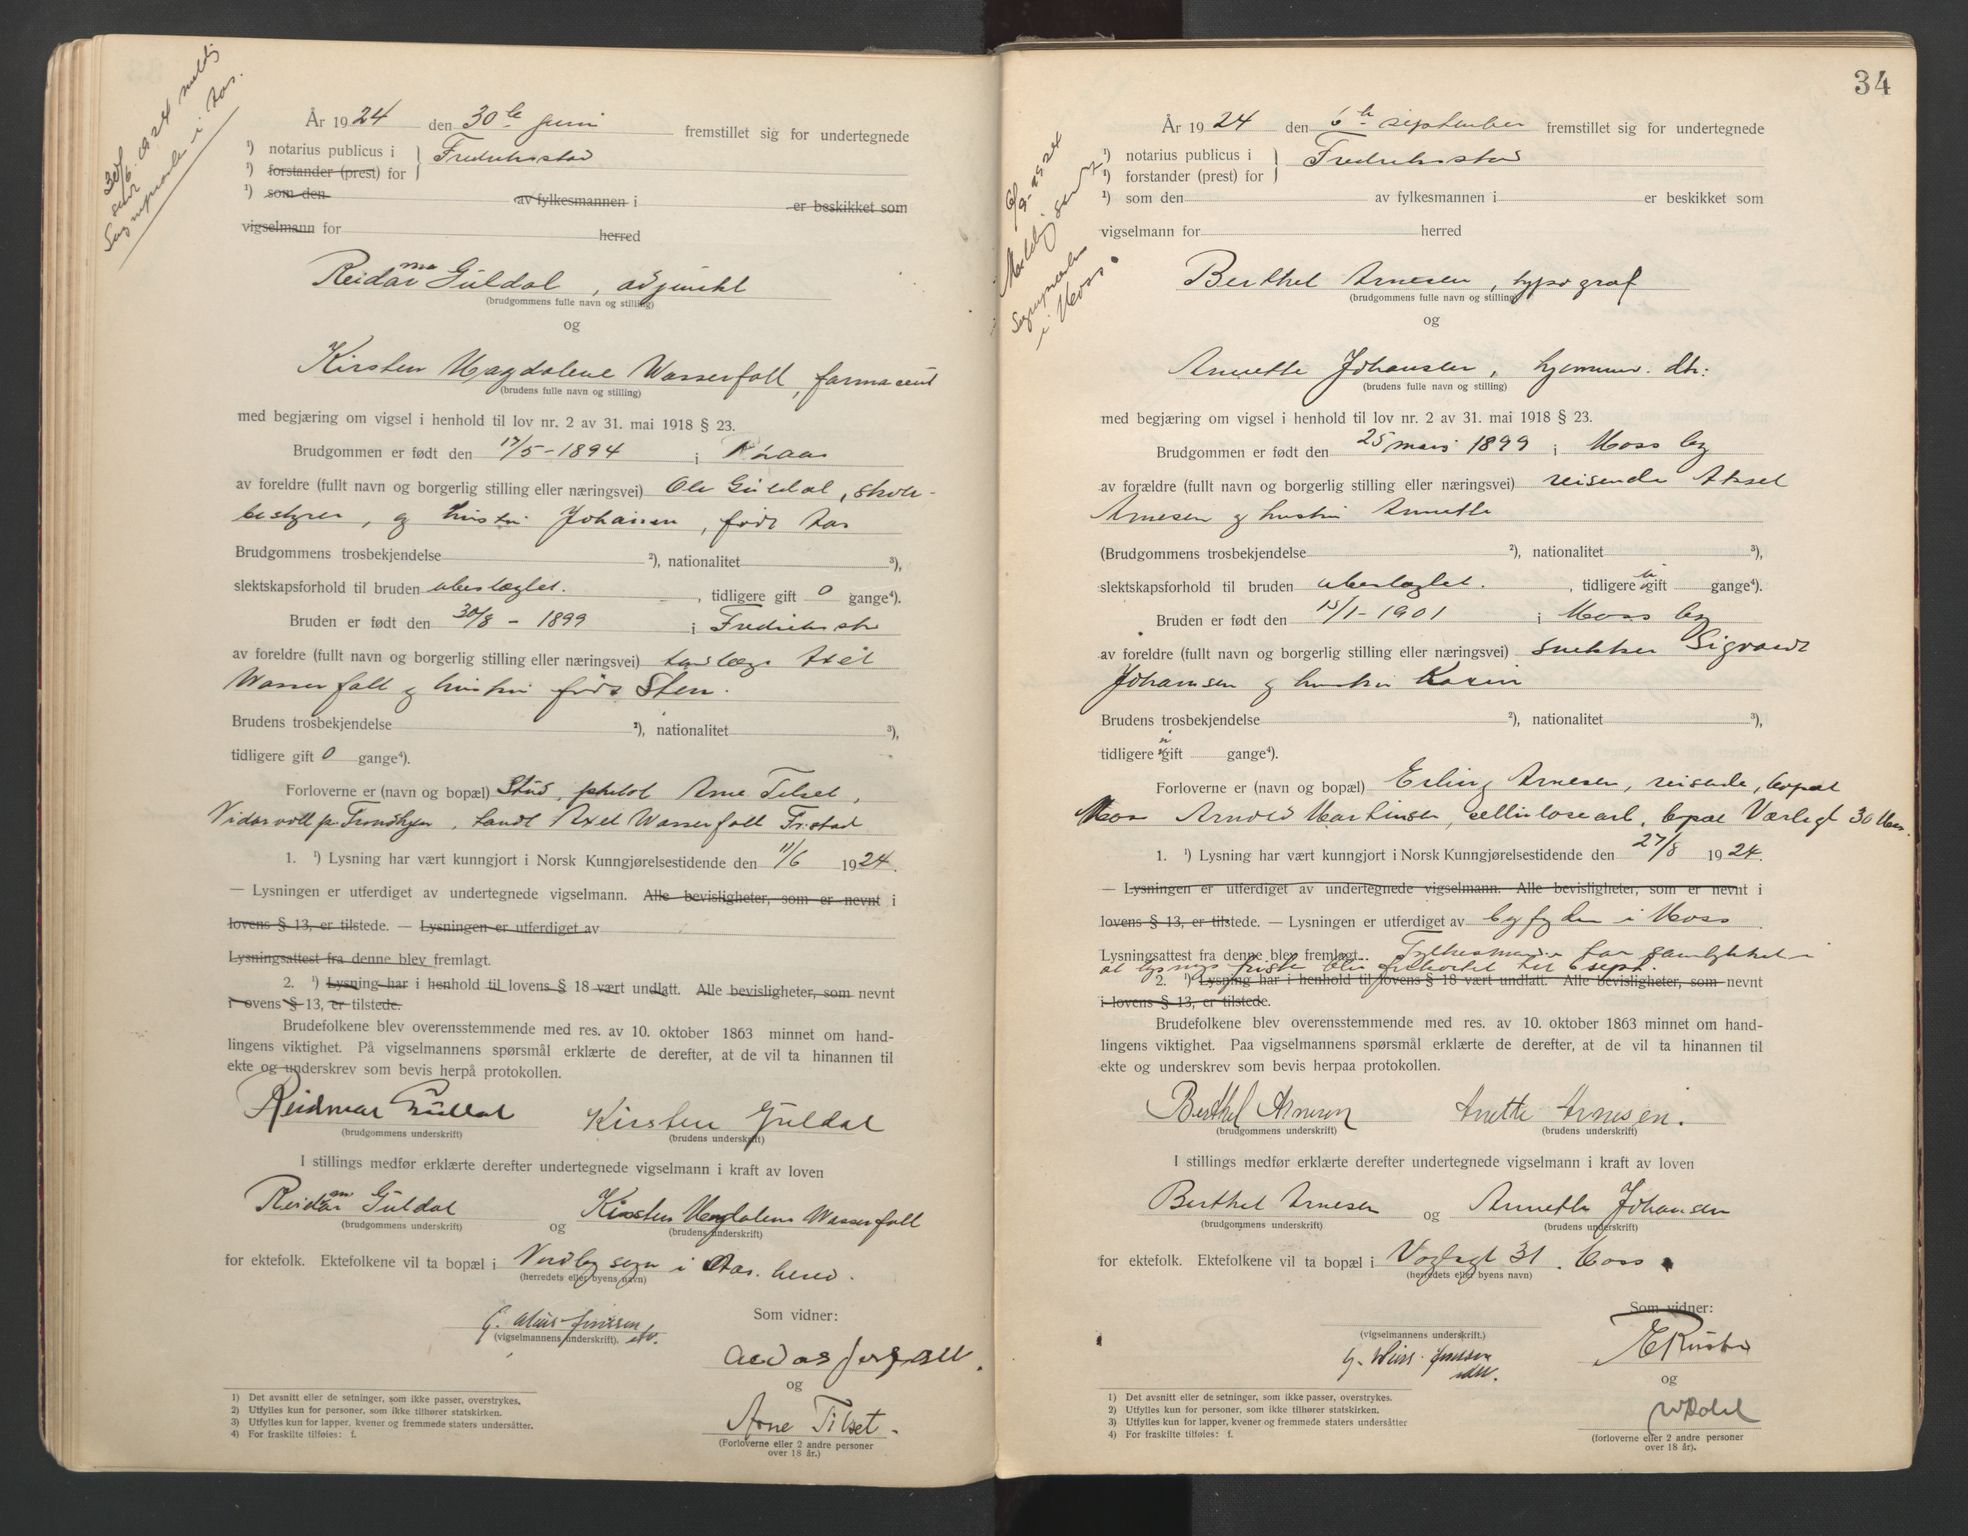 30/6 1924 meld.
sendt
Sogneprest i Aas.
År 1924 den 30te juni fremstillet sig for undertegnede
¹) notarius publicus i } Fredriksstad
¹) forstander (prest) for
¹) som den av fylkesmannen i er beskikket som
vigselmann for herred
Reidmar Guldal, adjunkt
(brudgommens fulle navn og stilling)
og
Kirsten Magdalene Wasserfall, farmaceut
(brudens fulle navn og stilling)
med begjæring om vigsel i henhold til lov nr. 2 av 31. mai 1918 § 23.
Brudgommen er født den 17/5-1894 i Røraas
av foreldre (fullt navn og borgerlig stilling eller næringsvei) Ole Guldal, skole-
bestyrer, og hustru Johansen, født Aas
Brudgommens trosbekjendelse ²), nationalitet ³),
slektskapsforhold til bruden ubeslægtet. , tidligere gift 0 gange⁴).
Bruden er født den 30/8 - 1899 i Fredriksstad
av foreldre (fullt navn og borgerlig stilling eller næringsvei) tandlæge Axel
Wasserfall og hustru født Sten.
Brudens trosbekjendelse ²), nationalitet ³),
tidligere gift 0 gange⁴).
Forloverne er (navn og bopæl) Stud. philol Arne Tilset,
Vidarvoll pr Trondhjem, tandl Axel Wasserfall Fr.stad
1. ¹) Lysning har vært kunngjort i Norsk Kunngjørelsestidende den 11/6 1924.
— Lysningen er utferdiget av undertegnede vigselmann. Alle bevisligheter, som er nevnt i
lovens § 13, er tilstede. — Lysningen er utferdiget av
Lysningsattest fra denne blev fremlagt.
2. ¹) Lysning har i henhold til lovens § 18 vært undlatt. Alle bevisligheter, som nevnt
i lovens § 13, er tilstede.
Brudefolkene blev overensstemmende med res. av 10. oktober 1863 minnet om hand-
lingens viktighet. På vigselmannens spørsmål erklærte de derefter, at de vil ta hinannen til
ekte og underskrev som bevis herpå protokollen.
Reidmar Guldal Kirsten Guldal
(brudgommens underskrift) (brudens underskrift)
I stillings medfør erklærte derefter undertegnede vigselmann i kraft av loven
Reidmar Guldal og Kirsten Magdalene Wasserfall
(brudgommens underskrift) (brudens underskrift)
for ektefolk. Ektefolkene vil ta bopæl i Nordby sogn i Aas herred.
(herredets eller byens navn)
(vigselmannens underskrift).
Som vidner:
og
Arne Tilset
(Forloverne eller 2 andre personer
over 18 år).
1) Det avsnitt eller de setninger, som ikke passer, overstrykes.
2) Utfylles kun for personer, som ikke tilhører statskirken.
3) Utfylles kun for lapper, kvener og fremmede staters undersåtter.
4) For fraskilte tilføies: f.
34
6/9-1924
Melding sendt
Sognepresten
i Moss.
År 1924 den 6te september fremstillet sig for undertegnede
¹) notarius publicus i } Fredriksstad
¹) forstander (prest) for
¹) som den av fylkesmannen i er beskikket som
vigselmann for herred
Berthel Arnesen, typograf
(brudgommens fulle navn og stilling)
og
Annette Johansen, hjemmev. dtr:
(brudens fulle navn og stilling)
med begjæring om vigsel i henhold til lov nr. 2 av 31. mai 1918 § 23.
Brudgommen er født den 25 mars 1899 i Moss by
av forældre (fullt navn og borgerlig stilling eller næringsvei) reisende Aksel
Arnesen og hustru Annette
(Brudgommens trosbekjendelse ²), nationalitet ³),
slektskapsforhold til bruden ubeslægtet. , tidligere ugift gange⁴).
Bruden er født den 15/1-1901 i Moss by
av foreldre (fullt navn og borgerlig stilling eller næringsvei) snekker Sigvardt
Johansen og hustru Karin
Brudens trosbekjendelse ²), nationalitet ³),
tidligere ugift gange⁴).
Forloverne er (navn og bopæl) Erling Arnesen, reisende, bopæl
Moss Arnold Martinsen, cellulosearb, bopæl Værlegt 30 Moss.
1. ¹) Lysning har vært kunngjort i Norsk Kunngjørelsestidende den 27/8 1924.
— Lysningen er utferdiget av undertegnede vigselmann. Alle bevisligheter, som er nevnt i
lovens § 13, er tilstede. — Lysningen er utferdiget av byfogden i Moss
Lysningsattest fra denne blev fremlagt. Fylkesmannen har samtykket i
at lysningsfristen blir forkortet til 6 sept.
2. ¹) Lysning har i henhold til lovens § 18 vært undlatt. Alle bevisligheter, som nevnt
i lovens § 13, er tilstede.
Brudefolkene blev overensstemmende med res. av 10. oktober 1863 minnet om hand-
lingens viktighet. Paa vigselmannens spørsmål erklærte de derefter, at de vil ta hinannen til
ekte og underskrev som bevis herpaa protokollen.
Berthel Arnesen Anette Arnesen.
(brudgommens underskrift) (brudens underskrift)
I stillings medfør erklærte derefter undertegnede vigselmann i kraft av loven
Berthel Arnesen og Annette Johansen
(brudgommens underskrift) (brudens underskrift)
for ektefolk. Ektefolkene vil ta bopæl i Vogtsgt 31. Moss
(herredets eller byens navn)
Som vidner:
(vigselmannens underskrift.)
og
(forloverne eller 2 andre personer
over 18 år).
1) Det avsnitt eller de setninger, som ikke passer, overstrykes.
2) Utfylles kun for personer, som ikke tilhører statskirken.
3) Utfylles kun for lapper, kvener og fremmede staters undersåtter
4) For fraskilte tilføies: f.